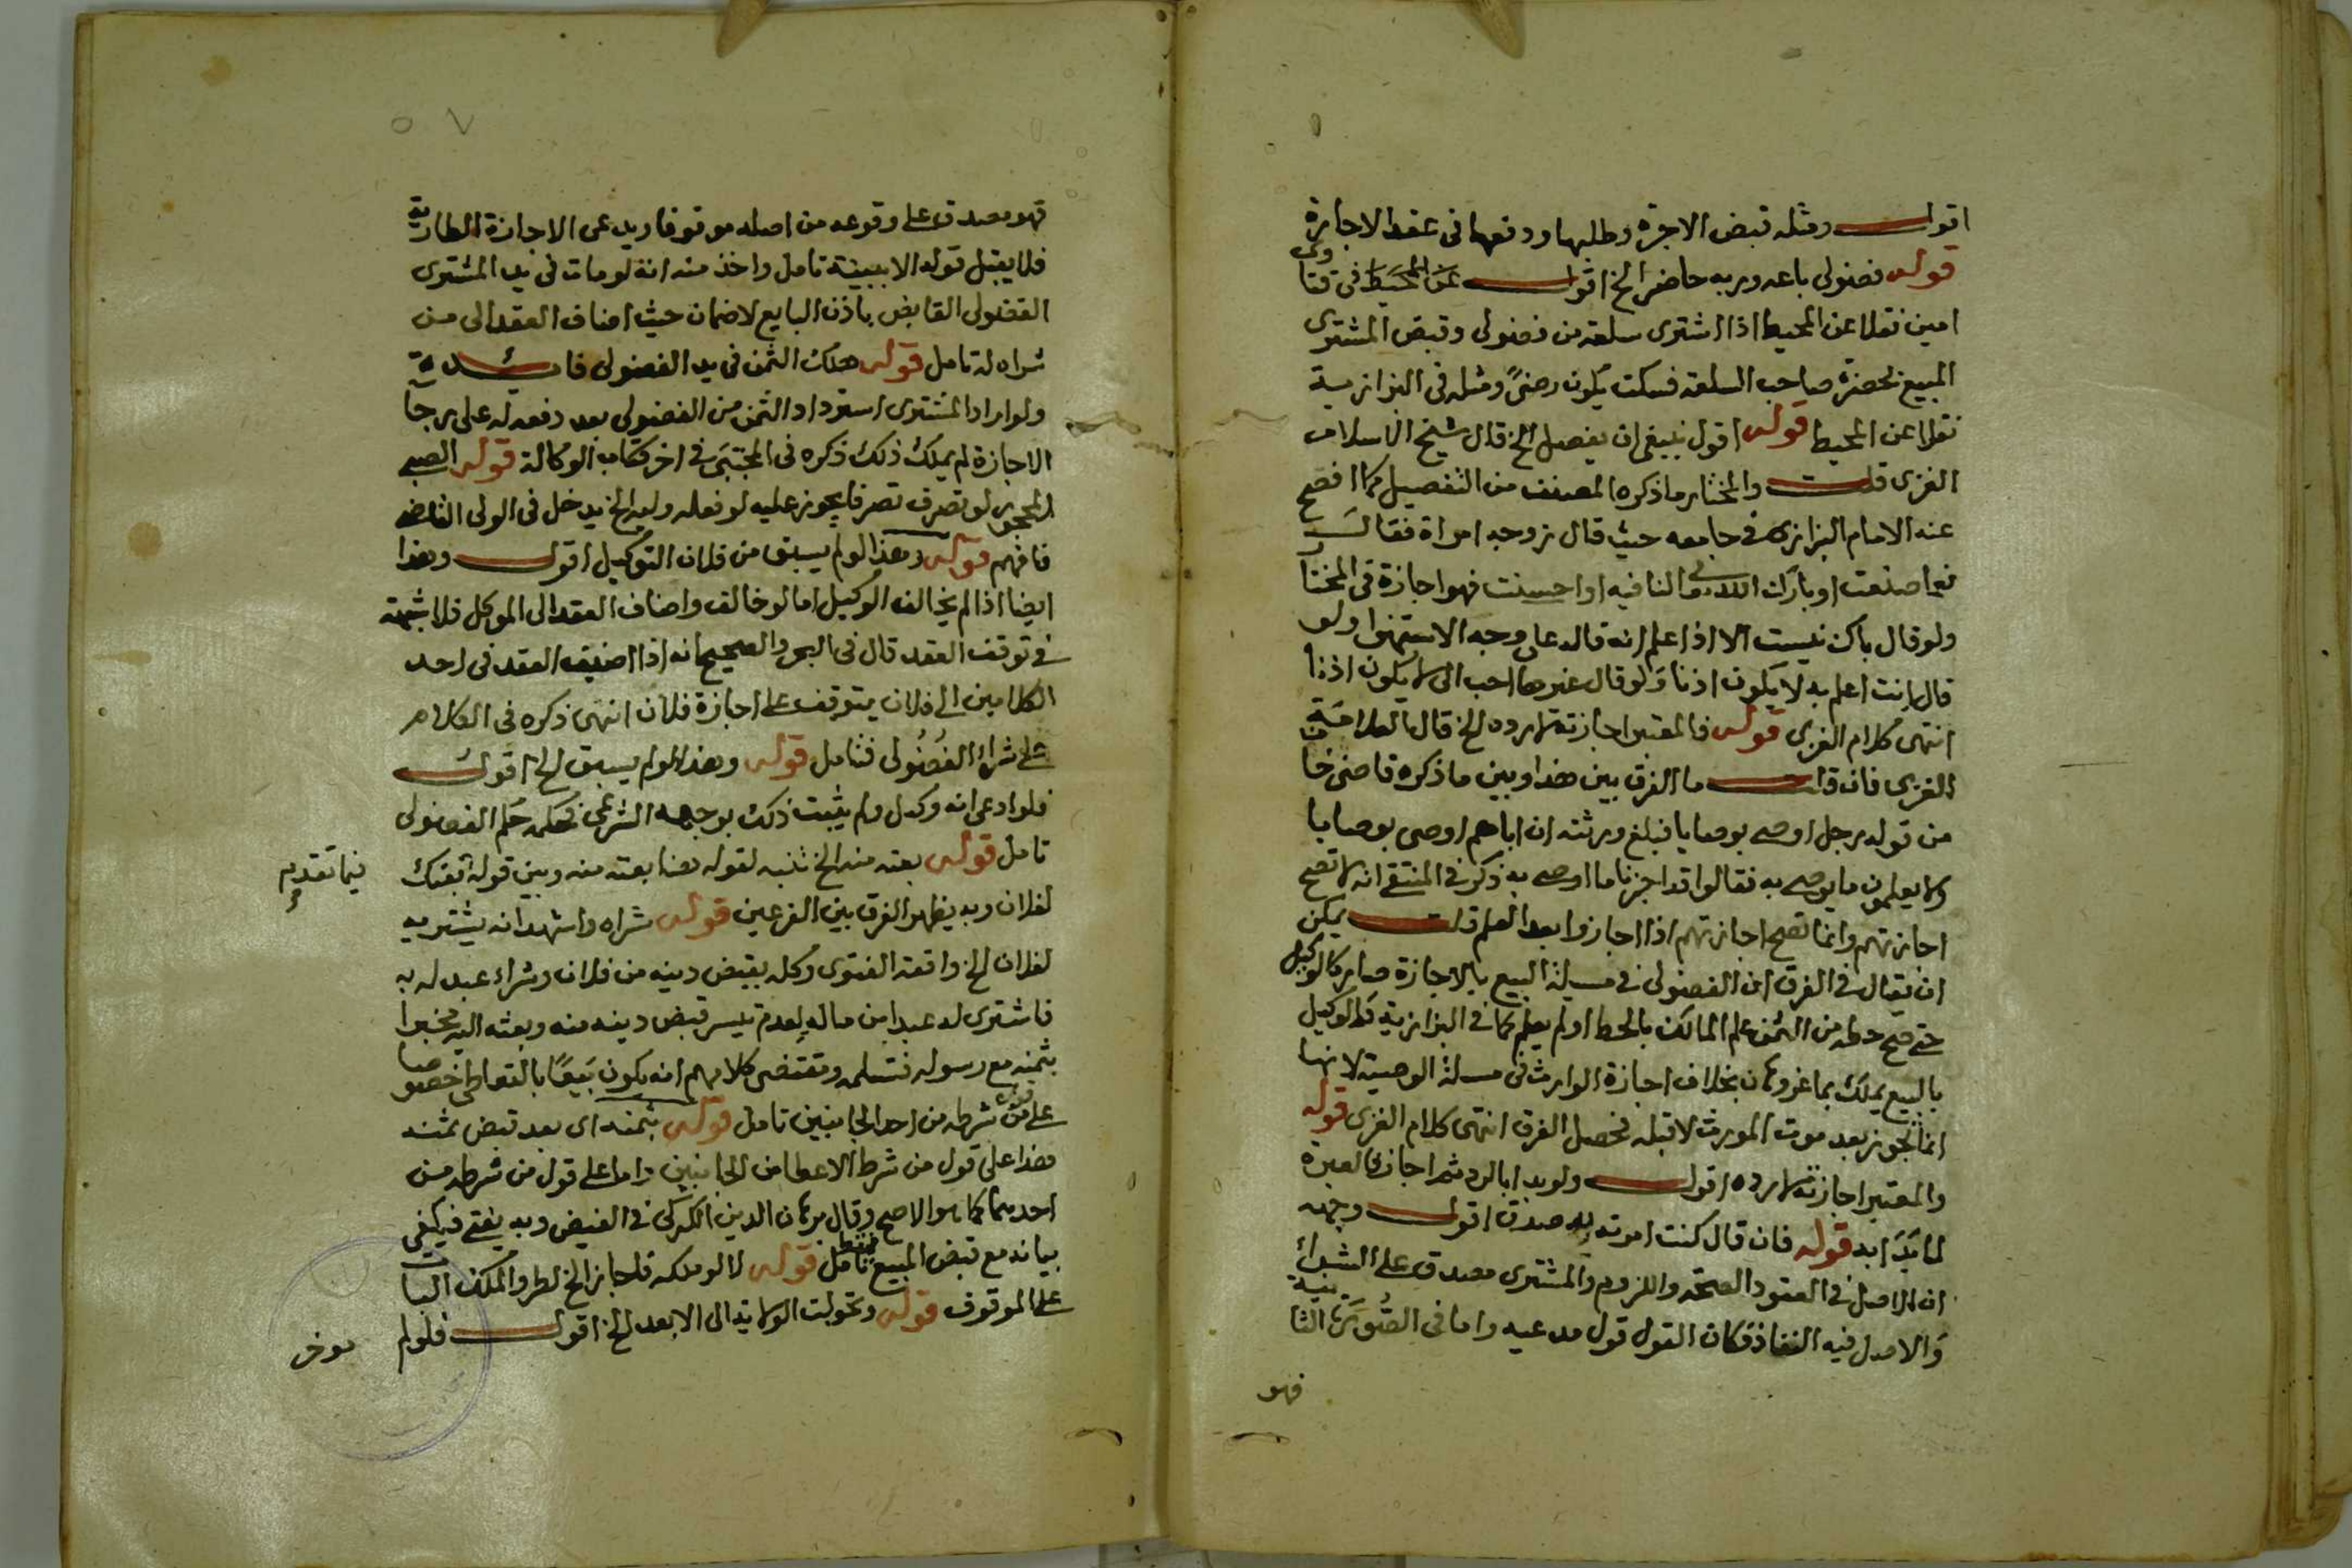 اقول ومثله قبض الاجرة وطلبها ودفعها فى عقد الاجارة
قوله فضولى باعه وربه حاضر الخ اقول عن المحيط فى فتاوى
امين نقلا عن المحيط اذا اشترى سلعة من فضولى وقبض المشترى
المبيع بحضرة صاحب السلعة فسكت يكون رضىً ومثله فى البزازية
نقلا عن المحيط قوله اقول ينبغى ان يفصل الخ قال شيخ الاسلام
الغزى قلت والمختار ما ذكره المصنف من التفصيل كما افصح
عنه الامام البزازى فى جامعه حيث قال زوجه امراة فقال
نعم ما صنعت او بارك الله لنا فيه او احسنت فهو اجازة فى المختار
ولو قال باك نيست الا اذا علم انه قاله على وجه الاستهزا ولو
قال انت اعلم به لا يكون اذنا ولو قال غيرها احب الى لا يكون اذنا
انتهى كلام الغزى قوله فالمعتبر اجازته لا رده الخ قال العلامة
الغزى فان قلت ما الفرق بين هذا وبين ما ذكره قاضى خا
من قوله رجل اوصى بوصايا فبلغ ورثته ان اباهم اوصى بوصايا
ولا يعلمون ما يوصى به فقالوا قد اجزنا ما اوصى به ذكر فى المنتقى انه لا تصح
اجازتهم وانما تصح اجازتهم اذا اجازوا بعد العلم قلت يمكن
ان يقال فى الفرق ان الفضولى فى مسيلة البيع بالاجازة صار كالوكيل
حتى صح حطه من الثمن علم المالك بالحط او لم يعلم كما فى البزازية كالوكيل
بالبيع يملك بخلاف اجازة الوارث فى مسيلة الوصية لانها
انما تجوز بعد موت المورث لا قبله فحصل الفرق انتهى كلام الغزى قوله
والمعتبر اجازته لا رده اقول ولو بدا بالرد ثم اجاز فالعبرة
لما بدا به قوله فان قال كنت امرته به صدق اقول وجهه
ان الاصل فى العقود الصحة واللزوم والمشترى مصدق على الشراء
والاصل فيه النفاذ فكان القول قول مدعيه واما فى الصورة الثانية
فهو
٥٧
فهو مصدق على وقوعه من اصله موقوفا ويدعى الاجازة الطارية
فلا يقبل قوله الا ببينة تامل واخذ منه انه لو مات فى يد المشترى
الفضولى القابض باذن البايع لا ضمان حيث اضاف العقد الى من
شراه له تامل قوله هلك الثمن فى يد الفضولى فائدة
ولو اراد المشترى استرداد الثمن من الفضولى بعد دفعه له على رجا
الاجازة لم يملك ذلك ذكره فى المجتبى فى اخر كتاب الوكالة قوله الصبى
المحجور لو تصرف تصرفا يجوز عليه لو فعله وليه الخ يدخل فى الولى القاضى
فافهم قوله وهذا لو لم يسبق من فلان التوكيل اقول وهذا
ايضا اذا لم يخالف الوكيل اما لو خالف واضاف العقد الى الموكل فلا شبهة
فى توقف العقد قال فى البحر والصحيح انه اذا اضيف العقد فى احد
الكلامين الى فلان يتوقف على اجازة فلان انتهى ذكره فى الكلام
على شراء الفضولى فتامل قوله وهذا لو لم يسبق الخ اقول
فلو ادعى انه وكيل ولم يثبت ذلك بوجهه الشرعى فحكمه حكم الفضولى
تامل قوله بعته منه الخ تنبه لقوله هنا بعته منه وبين قوله بعتك
فيما تقدم
لفلان وبه يظهر الفرق بين الفرعين قوله شراه واشهد انه يشتريه
لفلان الخ واقعة الفتوى وكله بقبض دينه من فلان وشراء عبد له به
فاشترى له عبدا من ماله لعدم تيسر قبض دينه منه وبعثه اليه مخبرا
بثمنه مع رسوله فتسلمه ومقتضى كلامهم انه يكون بيعًا بالتعاطى خصوصا
على من شرطه من احد الجانبين تامل قوله بثمنه اى بعد قبض ثمنه
هذا على قول من شرط الاعطا من الجانبين واما على قول من شرطه من
احدهما كما هو الاصح وقال برهان الدين الكركى فى الفيض وبه يفتى فيكفى
بيانه مع قبض المبيع فقط تامل قوله لا لو ملكه فاجاز الخ لطرو الملك البات
على الموقوف قوله وتحولت الولاية الى الابعد الخ اقول فلو لم